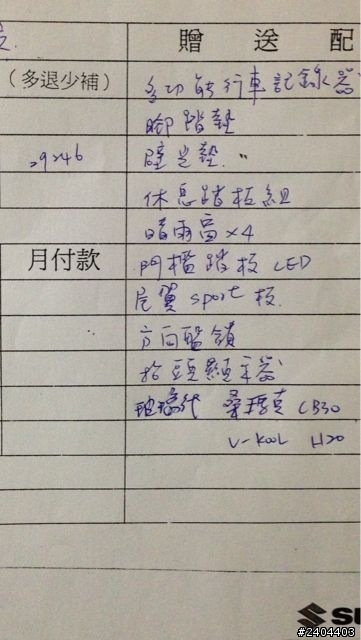 贈 送 配
(多退少補) 多功能行車記錄器
腳踏墊
29246 避光墊
休息踏板組
晴雨窗×4
月付款 門檻踏板 LED
尾翼 sport 板
方向盤鎖
抬頭顯示器
玻璃貼 桑瑪克 CB30
V-KOOL H20
#2404403